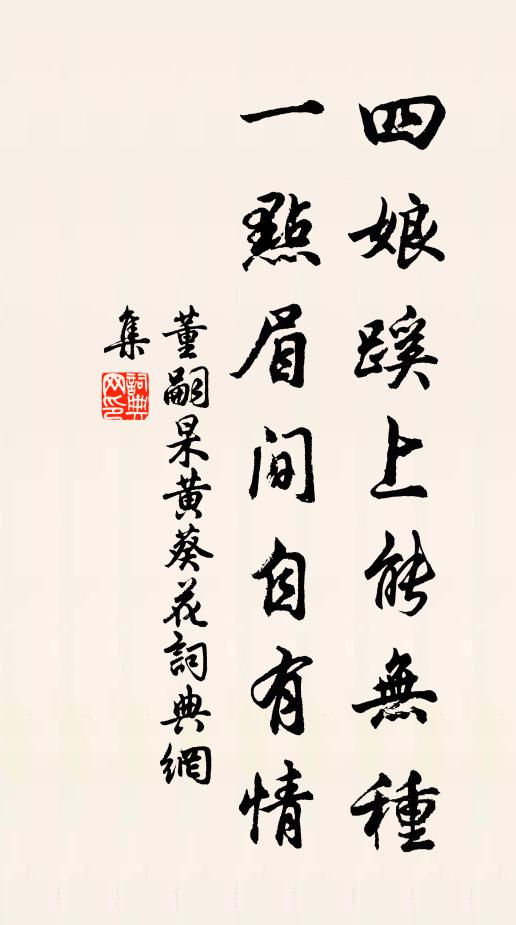 四娘蹊上能無種
一點眉間自有情
董嗣杲黃葵花詞典網
集
詞典
网印